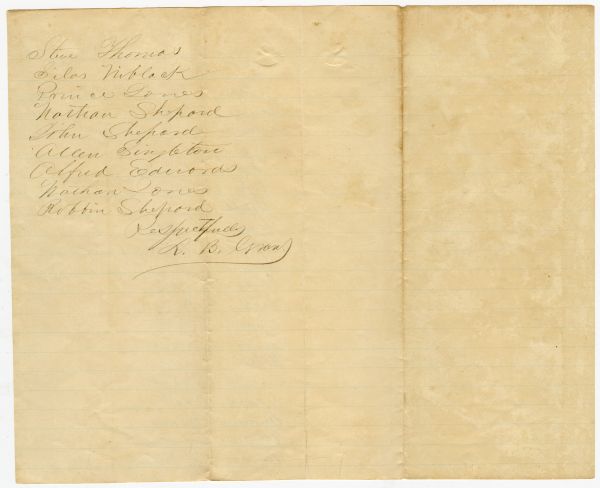 Steve Thomas
Silas Niblack
Prince Jones
Nathan Shepard
John Shepard
Allen Singleton
Alfred Edwards
Nathan Jones
Robbin Shepard
Respectfully
K. B.